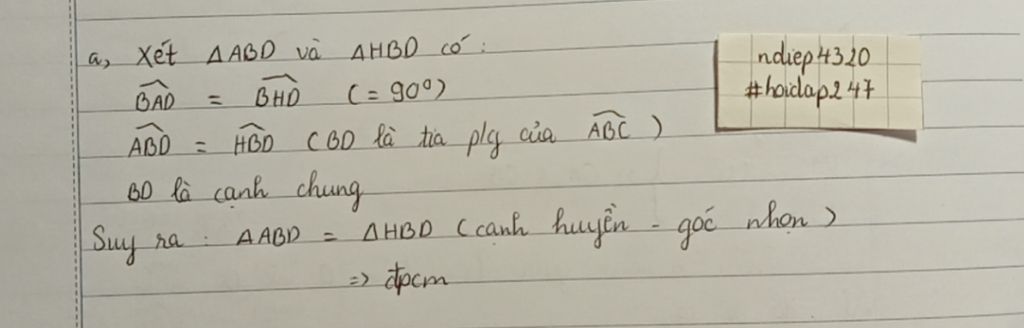 a, Xét ΔABD và ΔHBD có :
\widehat{BAD} = \widehat{BHD} (= 90°)
\widehat{ABD} = \widehat{HBD} (BD là tia p/g của \widehat{ABC} )
BD là cạnh chung
Suy ra : ΔABD = ΔHBD (cạnh huyền - góc nhọn)
=> đpcm
ndiep4320
#hoidap247